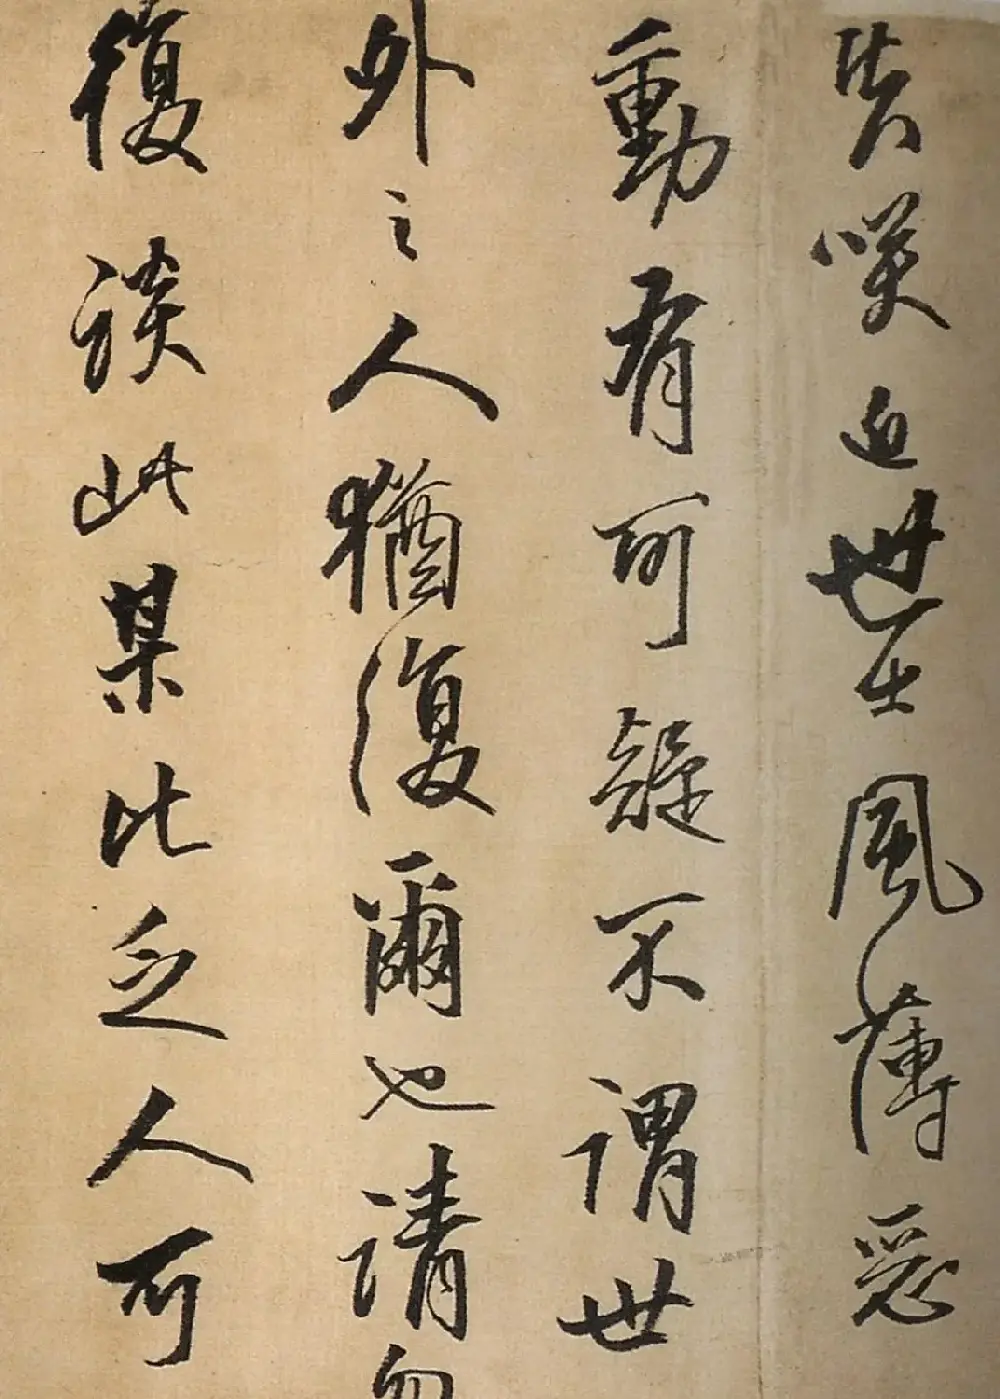 咲近世士風薄惡
動有可疑不謂世
外之人猶復爾也請勿
復談此某比乏人可